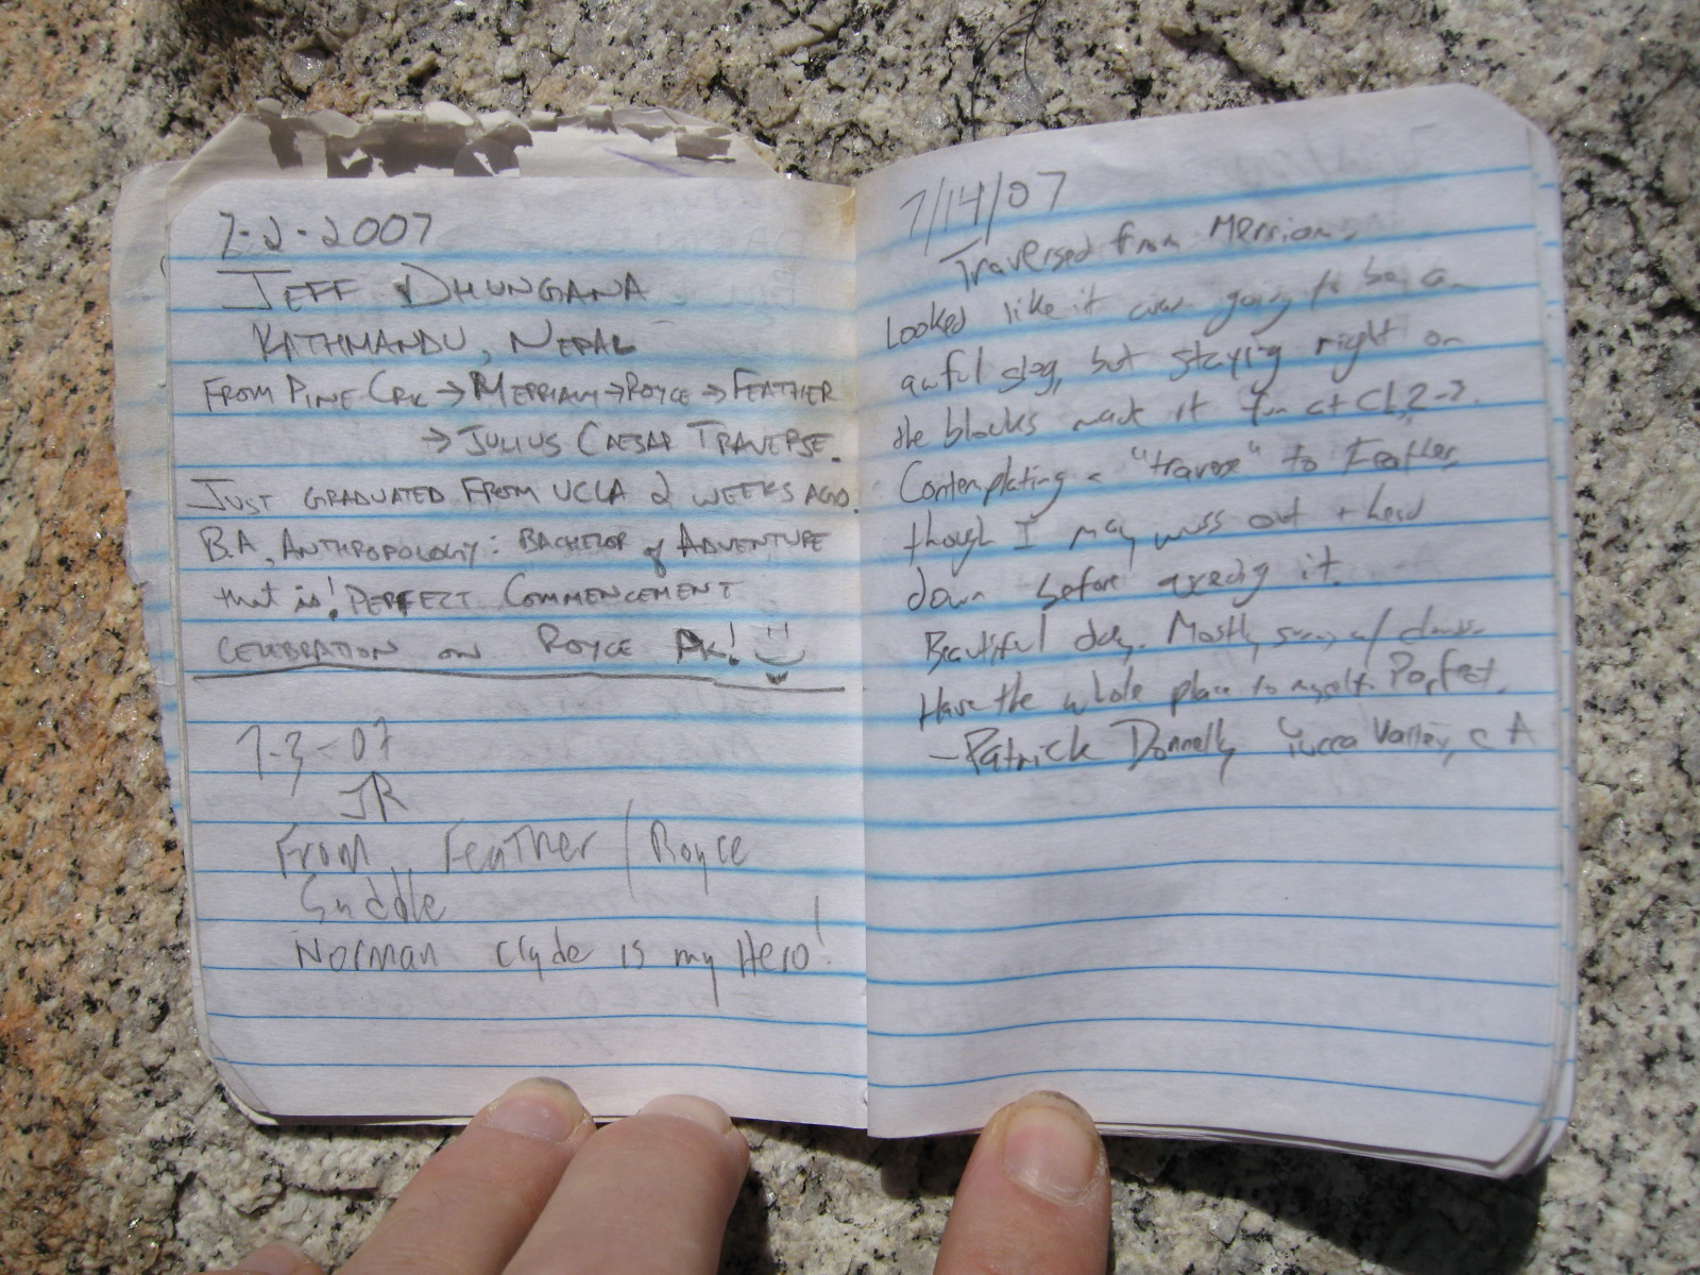 7-2-2007
JEFF DHUNGANA
KATHMANDU, NEPAL
FROM PINE CRK → MERRIAM → ROYCE → FEATHER
→ JULIUS CAESAR TRAVERSE.
JUST GRADUATED FROM UCLA 2 WEEKS AGO.
B.A. ANTHROPOLOGY: BACHELOR of ADVENTURE
that is! PERFECT COMMENCEMENT
CELEBRATION ON ROYCE PK!
7-3-07
JR
From Feather / Royce
Saddle
Norman Clyde is my Hero!
7/14/07
Traversed from Merriam.
Looked like it was going to be an
awful slog, but staying right on
the blocks made it fun at CL 2-3.
Contemplating a "traverse" to Feather,
though I may wuss out + head
down before it.
Beautiful day. Mostly sunny w/ clouds.
Have the whole place to myself. Perfect.
- Patrick Donnelly Yucca Valley, CA